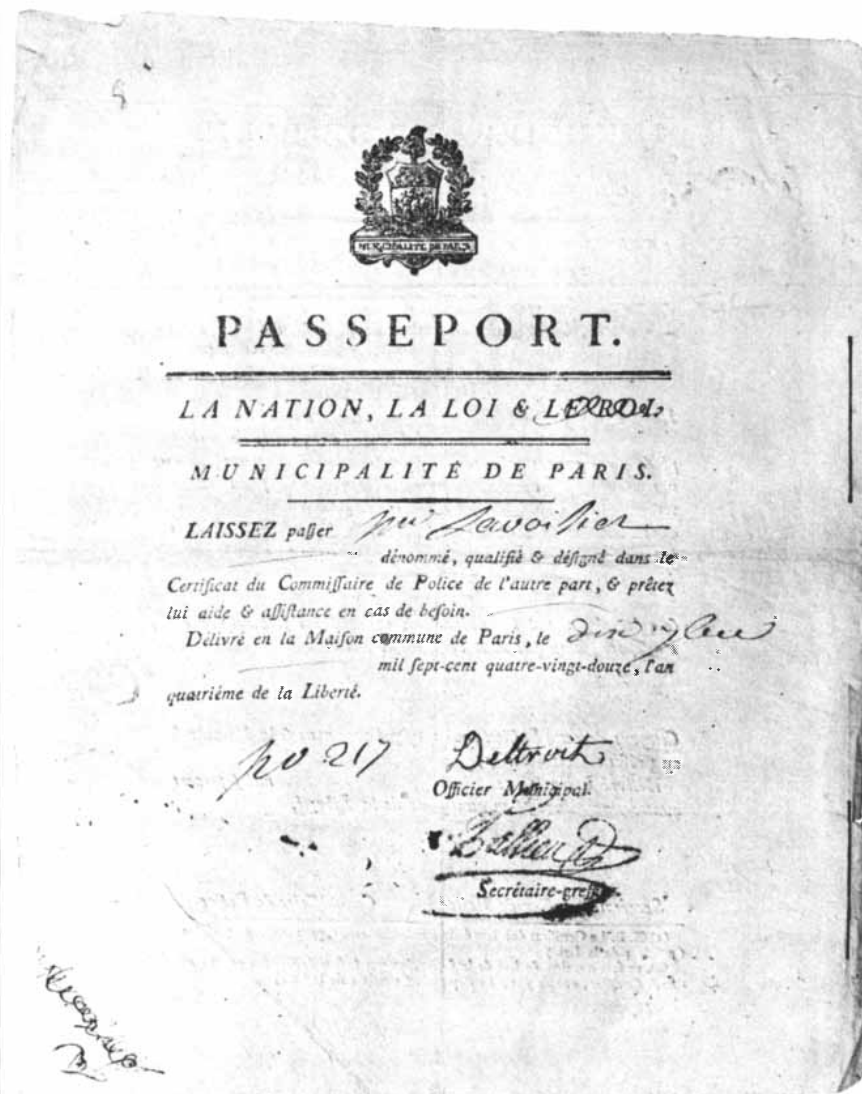 MUNICIPALITÉ DE PARIS
PASSEPORT.
LA NATION, LA LOI & LE ROI.
MUNICIPALITÉ DE PARIS.
LAISSEZ paſſer Lavoisier
dénommé, qualifié & déſigné dans le
Certificat du Commiſſaire de Police de l'autre part, & prêtez
lui aide & aſſiſtance en cas de beſoin.
Délivré en la Maiſon commune de Paris, le
mil ſept-cent quatre-vingt-douze, l'an
quatriéme de la Liberté.
no 217
Officier Municipal.
Tallien
Secrétaire-greffier.